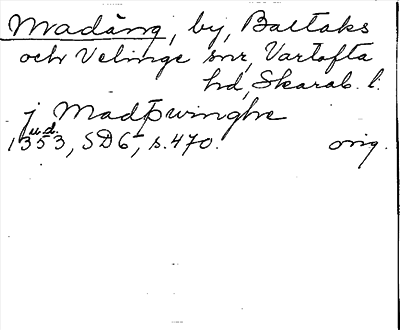 Madäng, by, Baltaks
och Velinge snr, Vartofta
hd, Skarab. l.
j Madþwinghe
u.d.
1353, SD6, s. 470. orig.